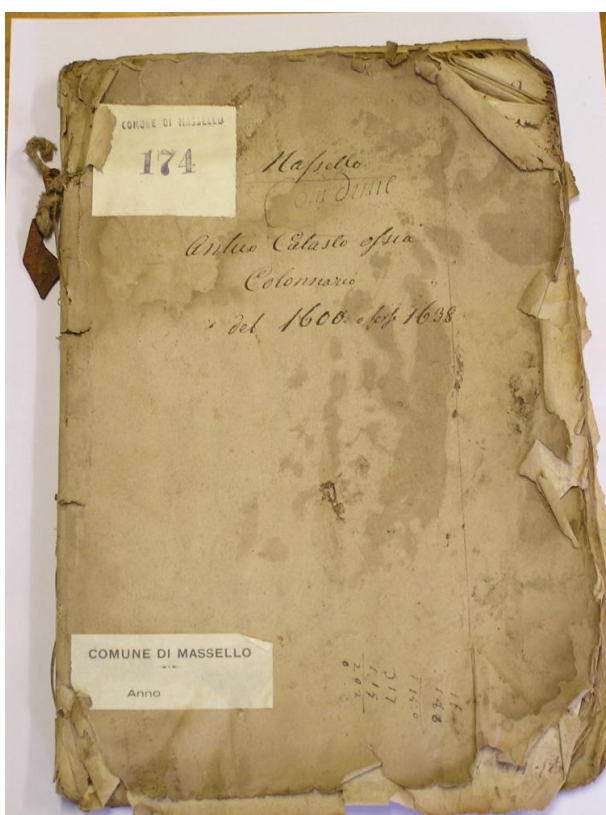 COMUNE DI MASSELLO
174
Massello
Antico Catasto ossia
Colonnario
del 1600 e 1638
COMUNE DI MASSELLO
Anno
202
115
317